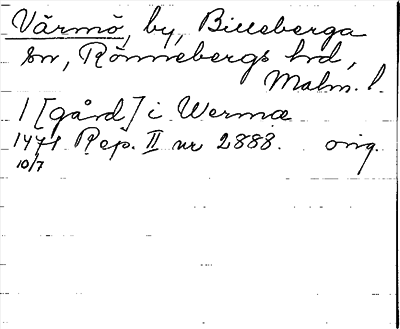 Värmö, by, Billeberga
sn, Rönnebergs hd,
Malm. l.
1 [gård] i Wermæ
1471 Rep. II nr 2888. orig.
10/7